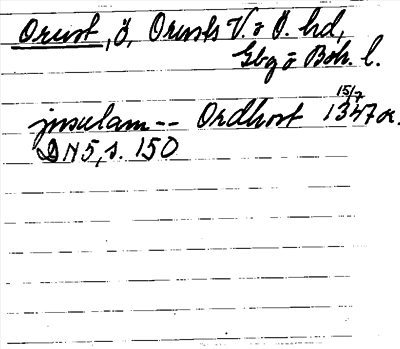 Orust, ö, Orusts V. o Ö. hd,
Gbg o Boh. l.
insulam -- Ordhost 15/7 1347 or.
DN 5, s. 150